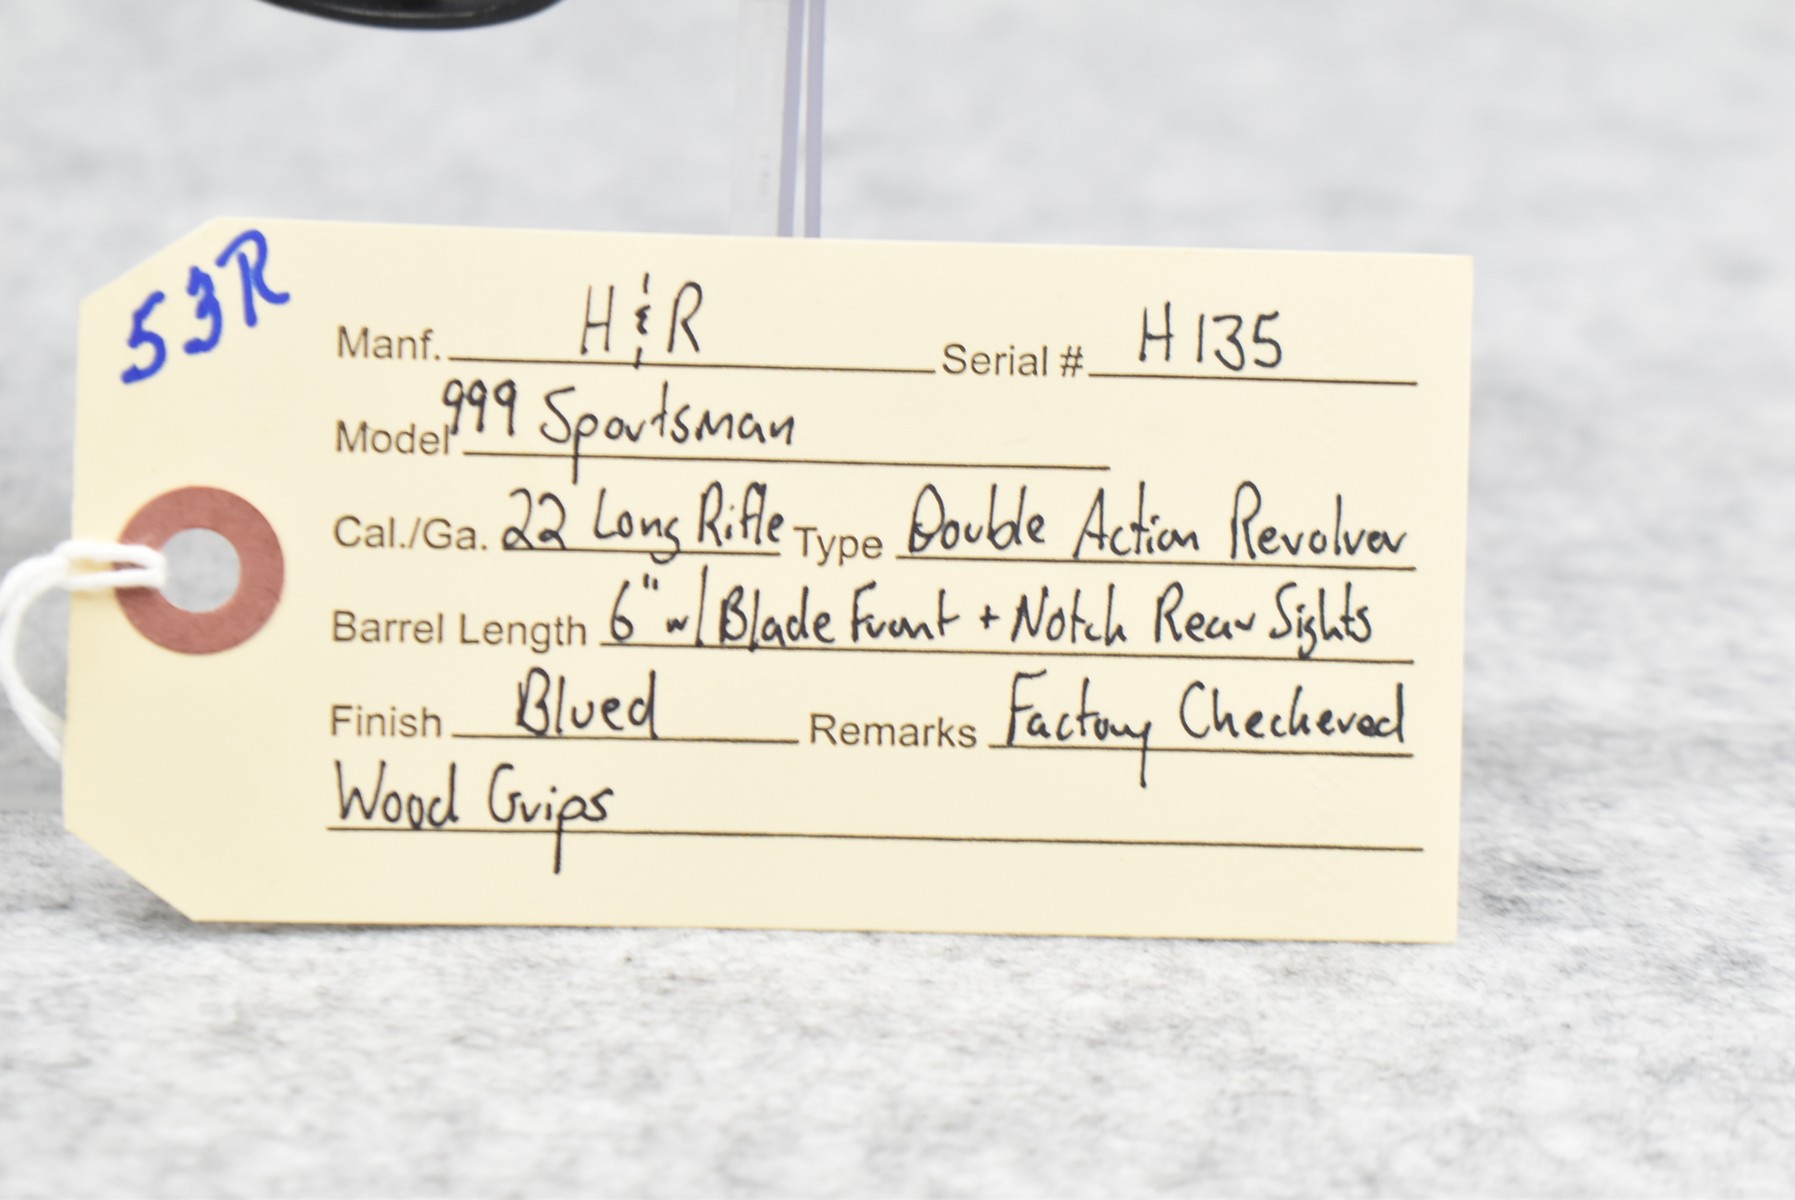 53R
Manf. H & R Serial # H135
Model 999 Sportsman
Cal./Ga. 22 Long Rifle Type Double Action Revolver
Barrel Length 6" w/ Blade Front + Notch Rear Sights
Finish Blued Remarks Factory Checkered
Wood Grips